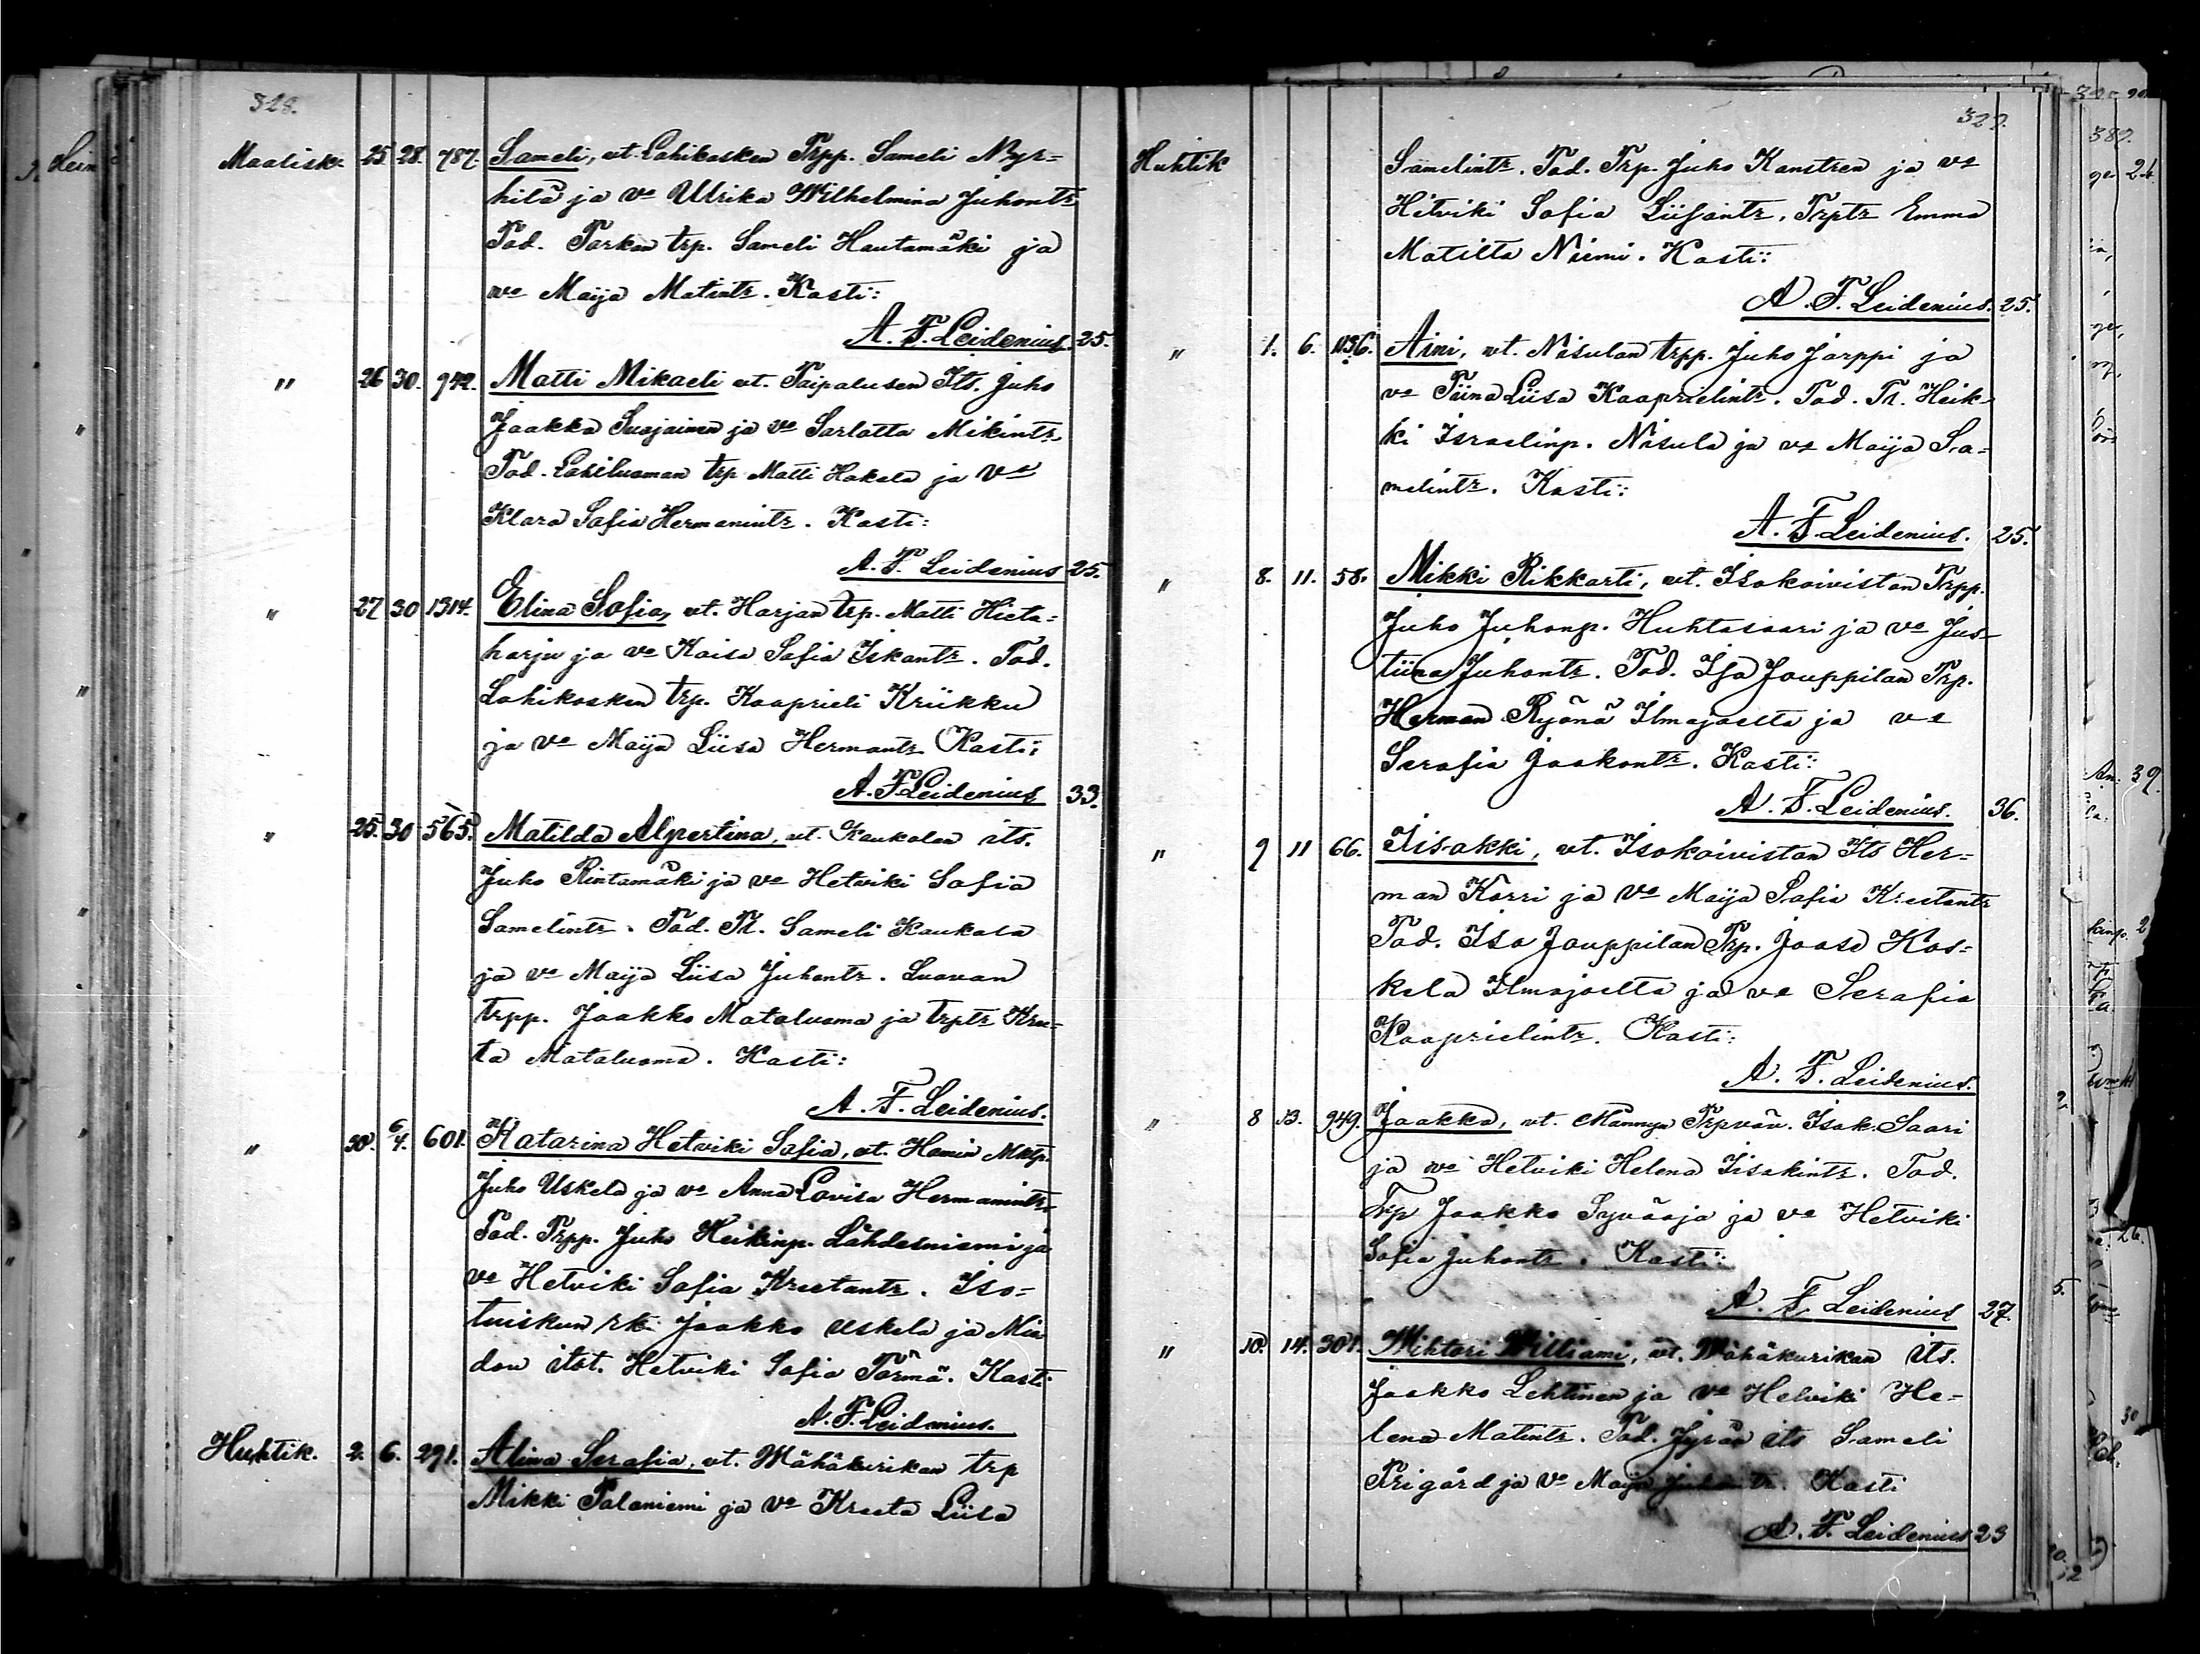 328.
Maalisk. 25. 28. 787. Sameli, vt. Lohikosken Trpp. Sameli Nyr=
hilä ja vo Ulrika Wilhelmina Juhontr
Tod. Torken trp. Sameli Hautamäki ja
vo Maija Matintr. Kasti:
A. F. Leidenius. 25.
" 26 30. 942. Matti Mikaeli vt. Taipalusen Its. Juho
Jaakko Suojainen ja vo Sarlotta Mikintr.
Tod. Lohiluoman trp Matti Hakala ja vo
Klara Sofia Hermanintr. Kasti:
A. F. Leidenius 25.
" 27 30 1314. Elina Sofia, vt. Harjan trp. Matti Hieta=
harju ja vo Kaisa Sofia Iskantr. Tod.
Lohikosken trp. Kaaprieli Kriikku
ja vo Maija Liisa Hermantr. Kasti:
A. F. Leidenius 33.
" 25. 30 565. Matilda Alpertina, vt. Kaukolan its.
Juho Rintamäki ja vo Hetviki Sofia
Samelintr. Tod. Tl. Sameli Kaukola
ja vo Maija Liisa Juhontr. Luovan
trpp. Jaakko Mataluoma ja trptr Kree-
ta Mataluoma. Kasti:
A. F. Leidenius.
" 30. 6/4. 601. Katarina Hetviki Sofia, vt. Hamin Mktp.
Juho Uskela ja vo Anna Lovisa Hermanintr.
Tod. Trpp. Juho Heikinp. Lähdesniemi ja
vo Hetviki Sofia Kreetantr. Iso=
tuiskun rk. Jaakko Uskela ja Mie
don itst. Hetviki Sofia Törmä. Kasti
A. F. Leidenius.
Huhtik. 2. 6. 291. Alina Serafia, vt. Wähäkurikan trp
Mikki Palaniemi ja vo Kreeta Liisa
329.
Huhtik Samelintr. Tod. Trp. Juho Kanstren ja vo
Hetviki Sofia Liisantr. Trptr Emma
Matilta Niemi. Kasti:
A. F. Leidenius. 25.
" 1. 6. 1136. Aini, vt. Nisulan trpp. Juho Jarppi ja
vo Tiina Liisa Kaaprielintr. Tod. Tl. Heik-
ki Israelinp. Nisula ja vo Maija Sa=
melintr. Kasti:
A. F. Leidenius. 25.
" 8. 11. 58. Mikki Rikkarti, vt. Isokoivistan Trpp.
Juho Juhonp. Huhtasaari ja vo Jus-
tiina Juhontr. Tod. Iso Jouppilan Trp.
Herman Ryönä Ilmajoelta ja vo
Serafia Jaakontr. Kasti:
A. F. Leidenius. 36.
" 9 11 66. Iisakki, vt. Isokoivistan Its Her=
man Korri ja vo Maija Sofia Kreetantr
Tod. Iso Jouppilan Trp. Joose Kos=
kela Ilmajoelta ja vo Serafia
Kaaprielintr. Kasti:
A. F. Leidenius.
" 8 13. 949. Jaakko, vt. Männyn Trpväv. Isak. Saari
ja vo Hetviki Helena Iisakintr. Tod.
Trp Jaakko Syväoja ja vo Hetviki
Sofia Juhontr. Kasti:
A. F. Leidenius 27.
" 10. 14. 301. Wihtori Williami, vt. Wähäkurikan its.
Jaakko Lehtinen ja vo Hetviki He=
lena Matintr. Tod. Jyrän its Sameli
Frigård ja vo Maija Juhontr. Kasti
A. F. Leidenius 23